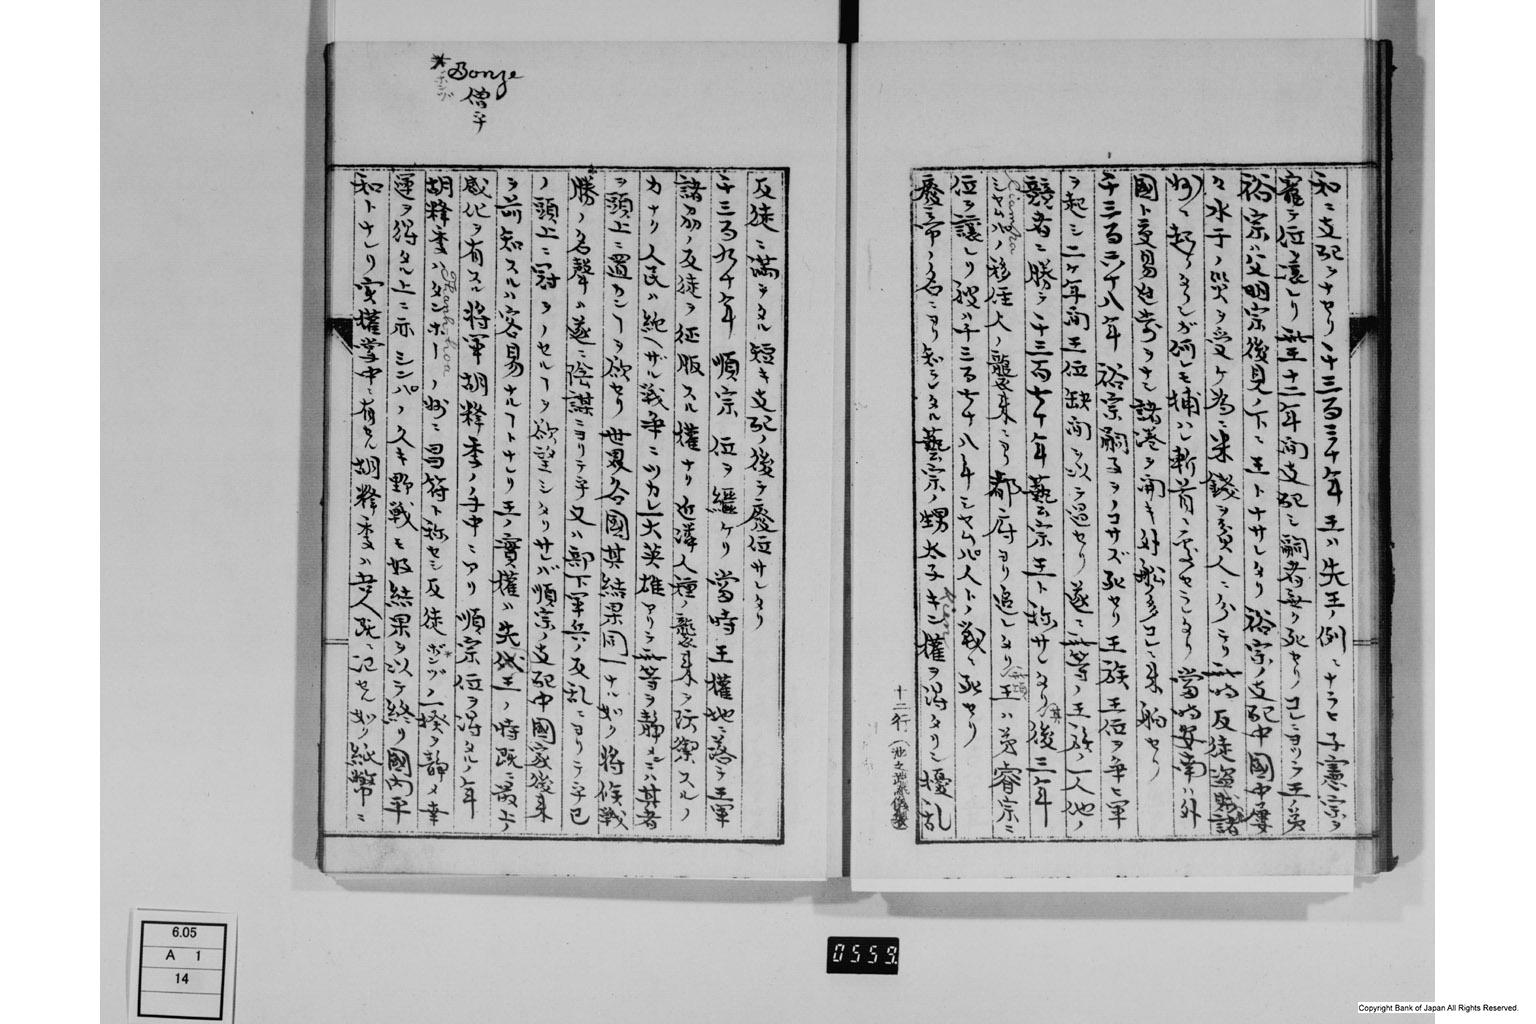 和ニ支配ヲナセリ千三百三十年王ハ先王ノ例ニナラヒ子憲宗ヲ
寵テ位ヲ譲レリ憲王十二年間支配シ嗣者無ク死セリコレニヨリテ王ノ弟
裕宗ハ父明宗後見ノ下ニ王トナサレタリ裕宗ノ支配中國中屢
水干ノ災ヲ受ケ為ニ米錢ヲ貧人ニ分テリ此時反徒盗賊諸
州ニ起リタレ𪜈何レモ捕ハレ斬首ニ處セラレタリ當時安南ハ外
國ト交易迠ヲナシ諸港ヲ開キ外舩多クコヽニ来舶セリ
千三百六十八年裕宗嗣子ヲノコサズ死セリ王族王位ヲ争ヒ軍
ヲ起シニケ年間王位缺間ヲ以テ過セリ遂ニ此等ノ王族ノ一人他ノ
競者ニ勝テ千三百七十年藝宗王ト称サレタリ其後二年
シヤムパノ移住人ノ襲来ニヨリ都府ヨリ追レタリ王ハ弟睿宗ニ
Ciampa
位ヲ譲レリ彼ハ千三百七十八年シヤムパ人トノ戦ニ死セリ
廢帝ノ名ニヨリ知ラレタル藝宗ノ甥太子キン權ヲ得タリシ擾乱
Kien
十二行
反徒ニ満チタル短キ支配ノ後チ廢位サレタリ
千三百九十年順宗位ヲ繼ケリ當時王權地ニ落チ王軍
諸方ノ反徒ヲ征服スル權ナク近隣人種ノ襲来ヲ防禦スルノ
カナク人民ハ絶ヘザル戦争ニツカレ一大英雄アリテ此等ヲ静メシニハ其者
ヲ頭上ニ置カンヿヲ欲セリ世界各國其結果同一ナル如ク将候戦
勝ノ名聲ハ遂ニ陰謀ニヨリテ乎又ハ部下軍兵ノ反乱ニヨリテ乎己
ノ頭上ニ冠ヲノセルヿヲ欲望シタリサレバ順宗ノ支配中國家後来
ヲ前知スルハ容易ナルヿトナレリ王ノ實權ハ先代王ノ時既ニ最上ノ
感化ヲ有スル将軍胡釋季ノ手中ニアリ順宗位ヲ得タルノ年
胡釋季ハタンホーノ州ニ昌符ト称セシ反徒ボンヅノ一揆ヲ静メ幸
Thanh-hoa
運ヲ得タル上ニ亦シンパノ久キ野戦モ好結果ヲ以テ終リ國内平
和トナレリ実權掌中ニ有セル胡釋季ハ昔人既ニ記セル如ク紙幣ニ
Bonze
ボンヅ
僧乎
0559
6.05
A 1
14
Copyright Bank of Japan All Rights Reserved.